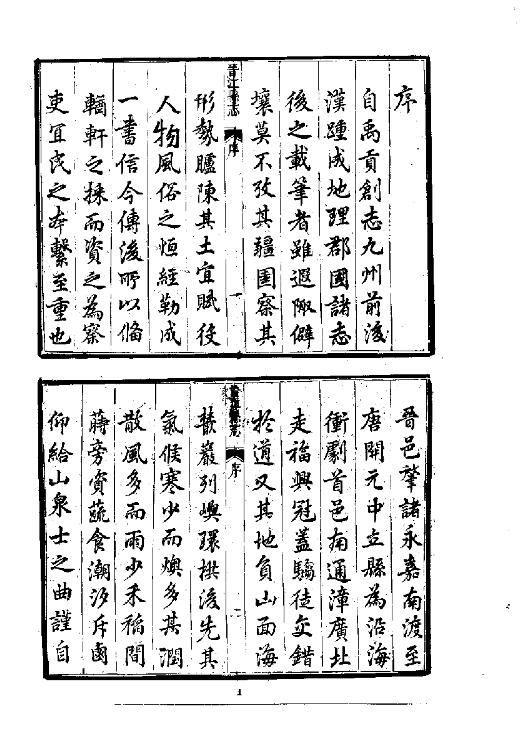 序
自禹貢創志九州前後
漢踵成地理郡國諸志
後之載筆者雖遐陬僻
壤莫不攷其疆圉察其
晉江縣志
序
一
形勢臚陳其土宜賦役
人物風俗之恒經勒成
一書信今傳後所以備
輶軒之採而資之為察
吏宜民之本繫至重也
晉邑肇諸永嘉南渡至
唐開元中立縣為沿海
衝劇首邑南通漳廣北
走福興冠蓋騶徒交錯
於道又其地負山面海
晉江縣志
序
二
巖列嶼環拱後先其
氣候寒少而燠多其潤
散風多而雨少禾稻間
蒔旁資蔬食潮汐斥鹵
仰給山泉士之曲謹自
1